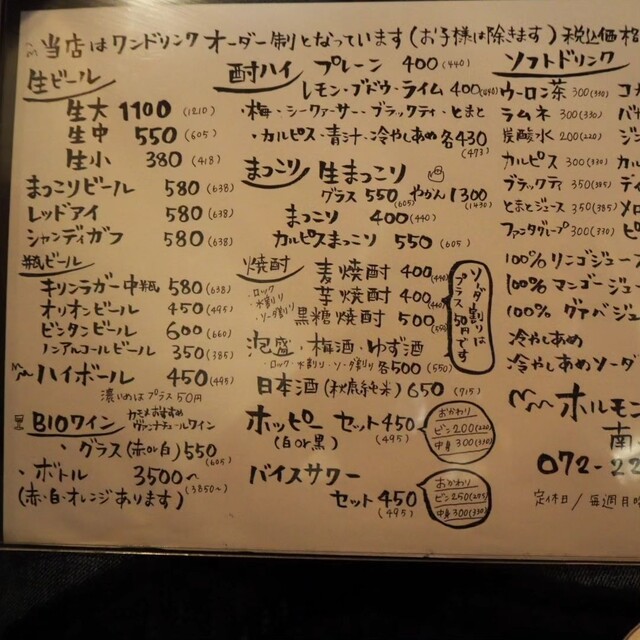 当店はワンドリンクオーダー制となっています(お子様は除きます) 税込価格
生ビール
生大 1100 (1210)
生中 550 (605)
生小 380 (418)
まっこりビール 580 (638)
レッドアイ 580 (638)
シャンディガフ 580 (638)
瓶ビール
キリンラガー中瓶 580 (638)
オリオンビール 450 (495)
ビンタンビール 600 (660)
ノンアルコールビール 350 (385)
ハイボール 450 (495)
濃いめはプラス50円
BIOワイン カミメおすすめ
ヴァンナチュールワイン
・グラス(赤or白) 550 (605)
・ボトル 3500〜 (3850〜)
(赤・白・オレンジあります)
酎ハイ プレーン 400 (440)
レモン・ブドウ・ライム 400 (440)
・梅・シークァーサー・ブラックティ・とまと
・カルピス・青汁・冷やしあめ 各430 (473)
まっこり 生まっこり
グラス 550 (605) やかん 1300 (1430)
まっこり 400 (440)
カルピスまっこり 550 (605)
焼酎 麦焼酎 400 (440)
・ロック
・水割り
・ソーダ割り
芋焼酎 400 (440)
黒糖焼酎 500 (550)
ソーダ割りは
プラス50円です
泡盛・梅酒・ゆず酒
・ロック・水割り・ソーダ割り 各500 (550)
日本酒(秋鹿純米) 650 (715)
ホッピー セット 450 (495)
(白or黒)
おかわり
ビン200 (220)
中身300 (330)
バイスサワー
セット 450 (495)
おかわり
ビン250 (275)
中身300 (330)
ソフトドリンク
ウーロン茶 300 (330)
ラムネ 300 (330)
炭酸水 200 (220)
カルピス 300 (330)
ブラックティ 350 (385)
とまとジュース 350 (385)
ファンタグレープ 300 (330)
100% リンゴジュー
100% マンゴージュー
100% グァバジュ
冷やしあめ
冷やしあめソーダ
ホルモン
南
072-22
定休日/毎週月曜